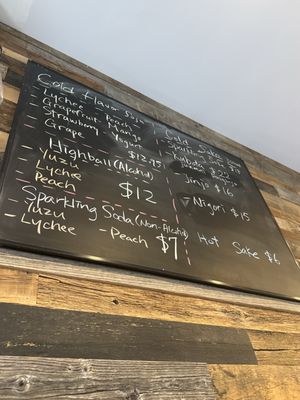 Cold Flavor Soju
- Lychee - Peach
- Grapefruit - Mango
- Strawberry - Yogurt
- Grape $12.95
Highball (Alcohol)
- Yuzu
- Lychee $12
- Peach
Sparkling Soda (Non-Alcohol)
- Yuzu
- Lychee - Peach $7
Cold Sake
- Sparkling
- Kubota
$22
Jinjo $16
Nigori $15
Hot Sake $6